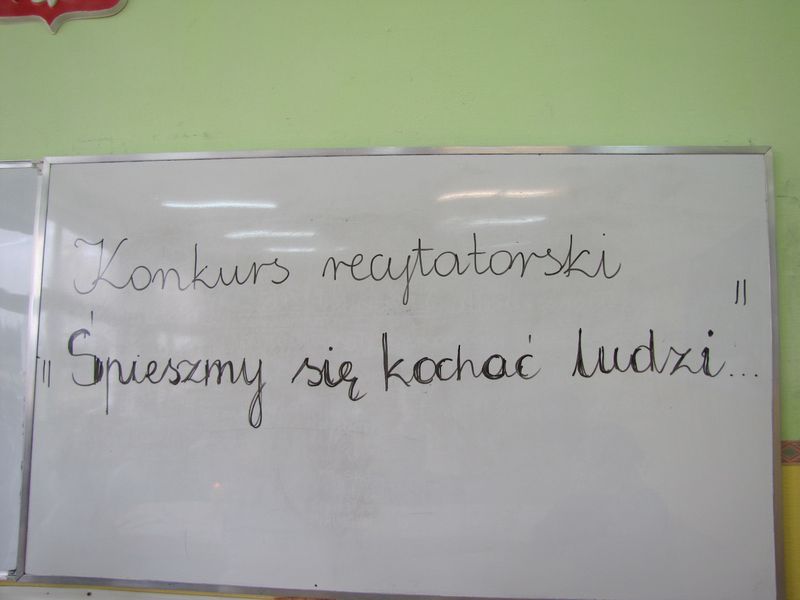 Konkurs recytatorski
"Śpieszmy się kochać ludzi..."